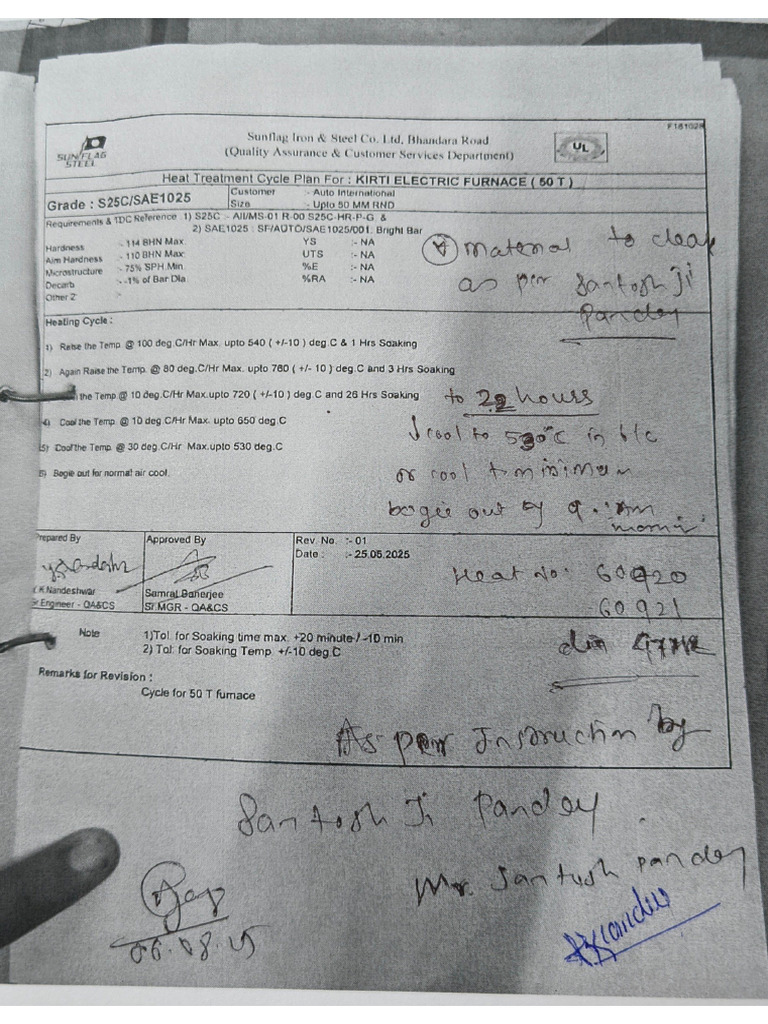 F181028
SUNFLAG
STEEL
Sunflag Iron & Steel Co. Ltd, Bhandara Road
(Quality Assurance & Customer Services Department)
UL
Heat Treatment Cycle Plan For : KIRTI ELECTRIC FURNACE ( 50 T )
Grade : S25C/SAE1025
Customer :- Auto International
Size :- Upto 50 MM RND
Requirements & TDC Reference 1) S25C :- AII/MS-01 R-00 S25C-HR-P-G, &
2) SAE1025 : SF/AUTO/SAE1025/001. Bright Bar
Hardness :- 114 BHN Max. YS :- NA
Aim Hardness :- 110 BHN Max. UTS :- NA
Microstructure :- 75% SPH.Min. %E :- NA
Decarb :- -1% of Bar Dia. %RA :- NA
Other 2 :-
Material to clear
as per Santosh Ji
Pandey
Heating Cycle :
1) Raise the Temp. @ 100 deg.C/Hr Max. upto 540 ( +/-10 ) deg.C & 1 Hrs Soaking
2) Again Raise the Temp. @ 80 deg.C/Hr Max. upto 760 ( +/- 10 ) deg.C and 3 Hrs Soaking
the Temp @ 10 deg.C/Hr Max.upto 720 ( +/-10 ) deg.C and 26 Hrs Soaking
to 22 hours
4) Cool the Temp. @ 10 deg.C/Hr Max.upto 650 deg.C
& cool to 530°C in f/c
5) Cool the Temp. @ 30 deg.C/Hr Max.upto 530 deg.C
or cool to minimum
6) Bogie out for normal air cool.
bogie out by 9. AM
Prepared By
Approved By
Rev. No. :- 01
Date : :- 25.05.2025
K Nandeshwar
Engineer - QA&CS
Samrat Banerjee
Sr.MGR - QA&CS
Heat No: 60920
60921
Note
1)Tol: for Soaking time max. +20 minute / -10 min
2) Tol: for Soaking Temp. +/-10 deg.C
dia
Remarks for Revision :
Cycle for 50 T furnace
As per Instruction by
Santosh Ji Pandey.
Mr. Santosh pandey
06.08.25